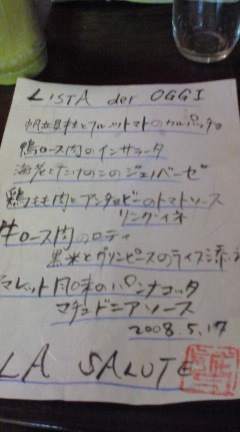 LISTA der OGGI
帆立貝柱とフルーツトマトのカルパッチョ
鴨ロース肉のインサラータ
海老とたけのこのジェノバーゼ
鶏もも肉とアンチョビーのトマトソース
リングイネ
牛ロース肉のロティ
黒米とグリンピースのライス添え
マレット風味のパンナコッタ
マチェドニアソース
2008.5.17
LA SALUTE